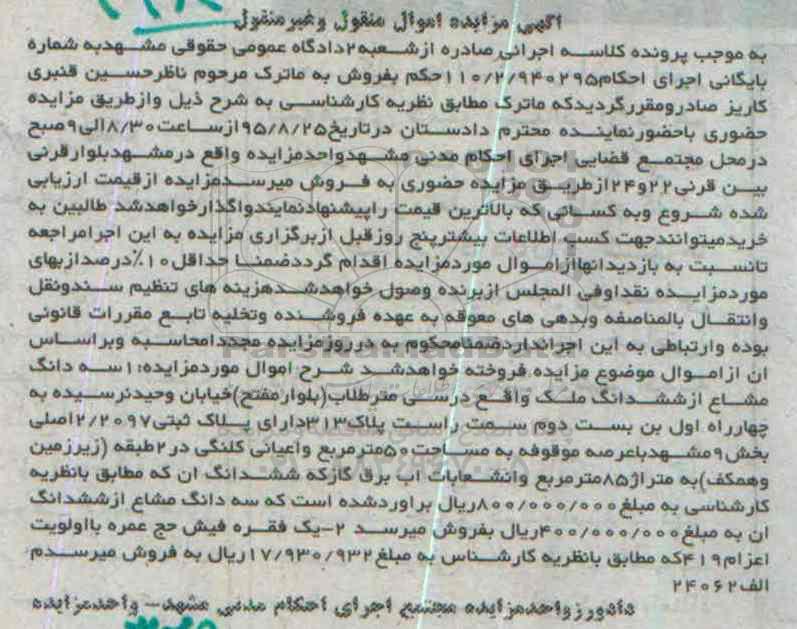 آگهی مزایده اموال منقول وغیرمنقول
به موجب پرونده کلاسه اجرائی صادره ازشعبه۲دادگاه عمومی حقوقی مشهدبه شماره
بایگانی اجرای احکام۱۱۰/۲/۹۴۰۲۹۵حکم بفروش به ماترک مرحوم ناظرحسین قنبری
کاریز صادرومقررگردیدکه ماترک مطابق نظریه کارشناسی به شرح ذیل وازطریق مزایده
حضوری باحضورنماینده محترم دادستان درتاریخ۹۵/۸/۲۵ازساعت۸/۳۰الی۹صبح
درمحل مجتمع قضایی اجرای احکام مدنی مشهدواحدمزایده واقع درمشهدبلوارقرنی
بین قرنی۲۲و۲۴ازطریق مزایده حضوری به فروش میرسدمزایده ازقیمت ارزیابی
شده شروع وبه کسانی که بالاترین قیمت راپیشنهادنمایندواگذارخواهدشد طالبین به
خریدمیتوانندجهت کسب اطلاعات بیشترپنج روزقبل ازبرگزاری مزایده به این اجرامراجعه
تانسبت به بازدیدازآنهاازاموال موردمزایده اقدام گرددضمنا حداقل۱۰٪درصدازبهای
موردمزایده نقداوفی المجلس ازبرنده وصول خواهدشدهزینه های تنظیم سندونقل
وانتقال بالمناصفه وبدهی های معوقه به عهده فروشنده وتخلیه تابع مقررات قانونی
بوده وارتباطی به این اجرانداردضمنامحکوم به درروزمزایده مجددامحاسبه وبراساس
ان ازاموال موضوع مزایده فروخته خواهدشد شرح اموال موردمزایده:۱سه دانگ
مشاع ازششدانگ ملک واقع درسی مترطلاب(بلوارمفتح)خیابان وحیدنرسیده به
چهارراه اول بن بست دوم سمت راست پلاک۳۱۳دارای پلاک ثبتی۲/۲۰۹۷اصلی
بخش۹مشهدباعرصه موقوفه به مساحت۵۰مترمربع واعیانی کلنگی در۲طبقه (زیرزمین
وهمکف)به متراژ۸۵مترمربع وانشعابات اب برق گازکه ششدانگ ان که مطابق بانظریه
کارشناسی به مبلغ۸۰۰/۰۰۰/۰۰۰ریال براوردشده است که سه دانگ مشاع ازششدانگ
ان به مبلغ۴۰۰/۰۰۰/۰۰۰ریال بفروش میرسد ۲-یک فقره فیش حج عمره بااولویت
اعزام۴۱۹که مطابق بانظریه کارشناس به مبلغ۱۷/۹۳۰/۹۳۲ریال به فروش میرسدم
الف۲۴۰۶۲
دادورزواحدمزایده مجتمع اجرای احکام مدنی مشهد- واحدمزایده
ParsNamadData